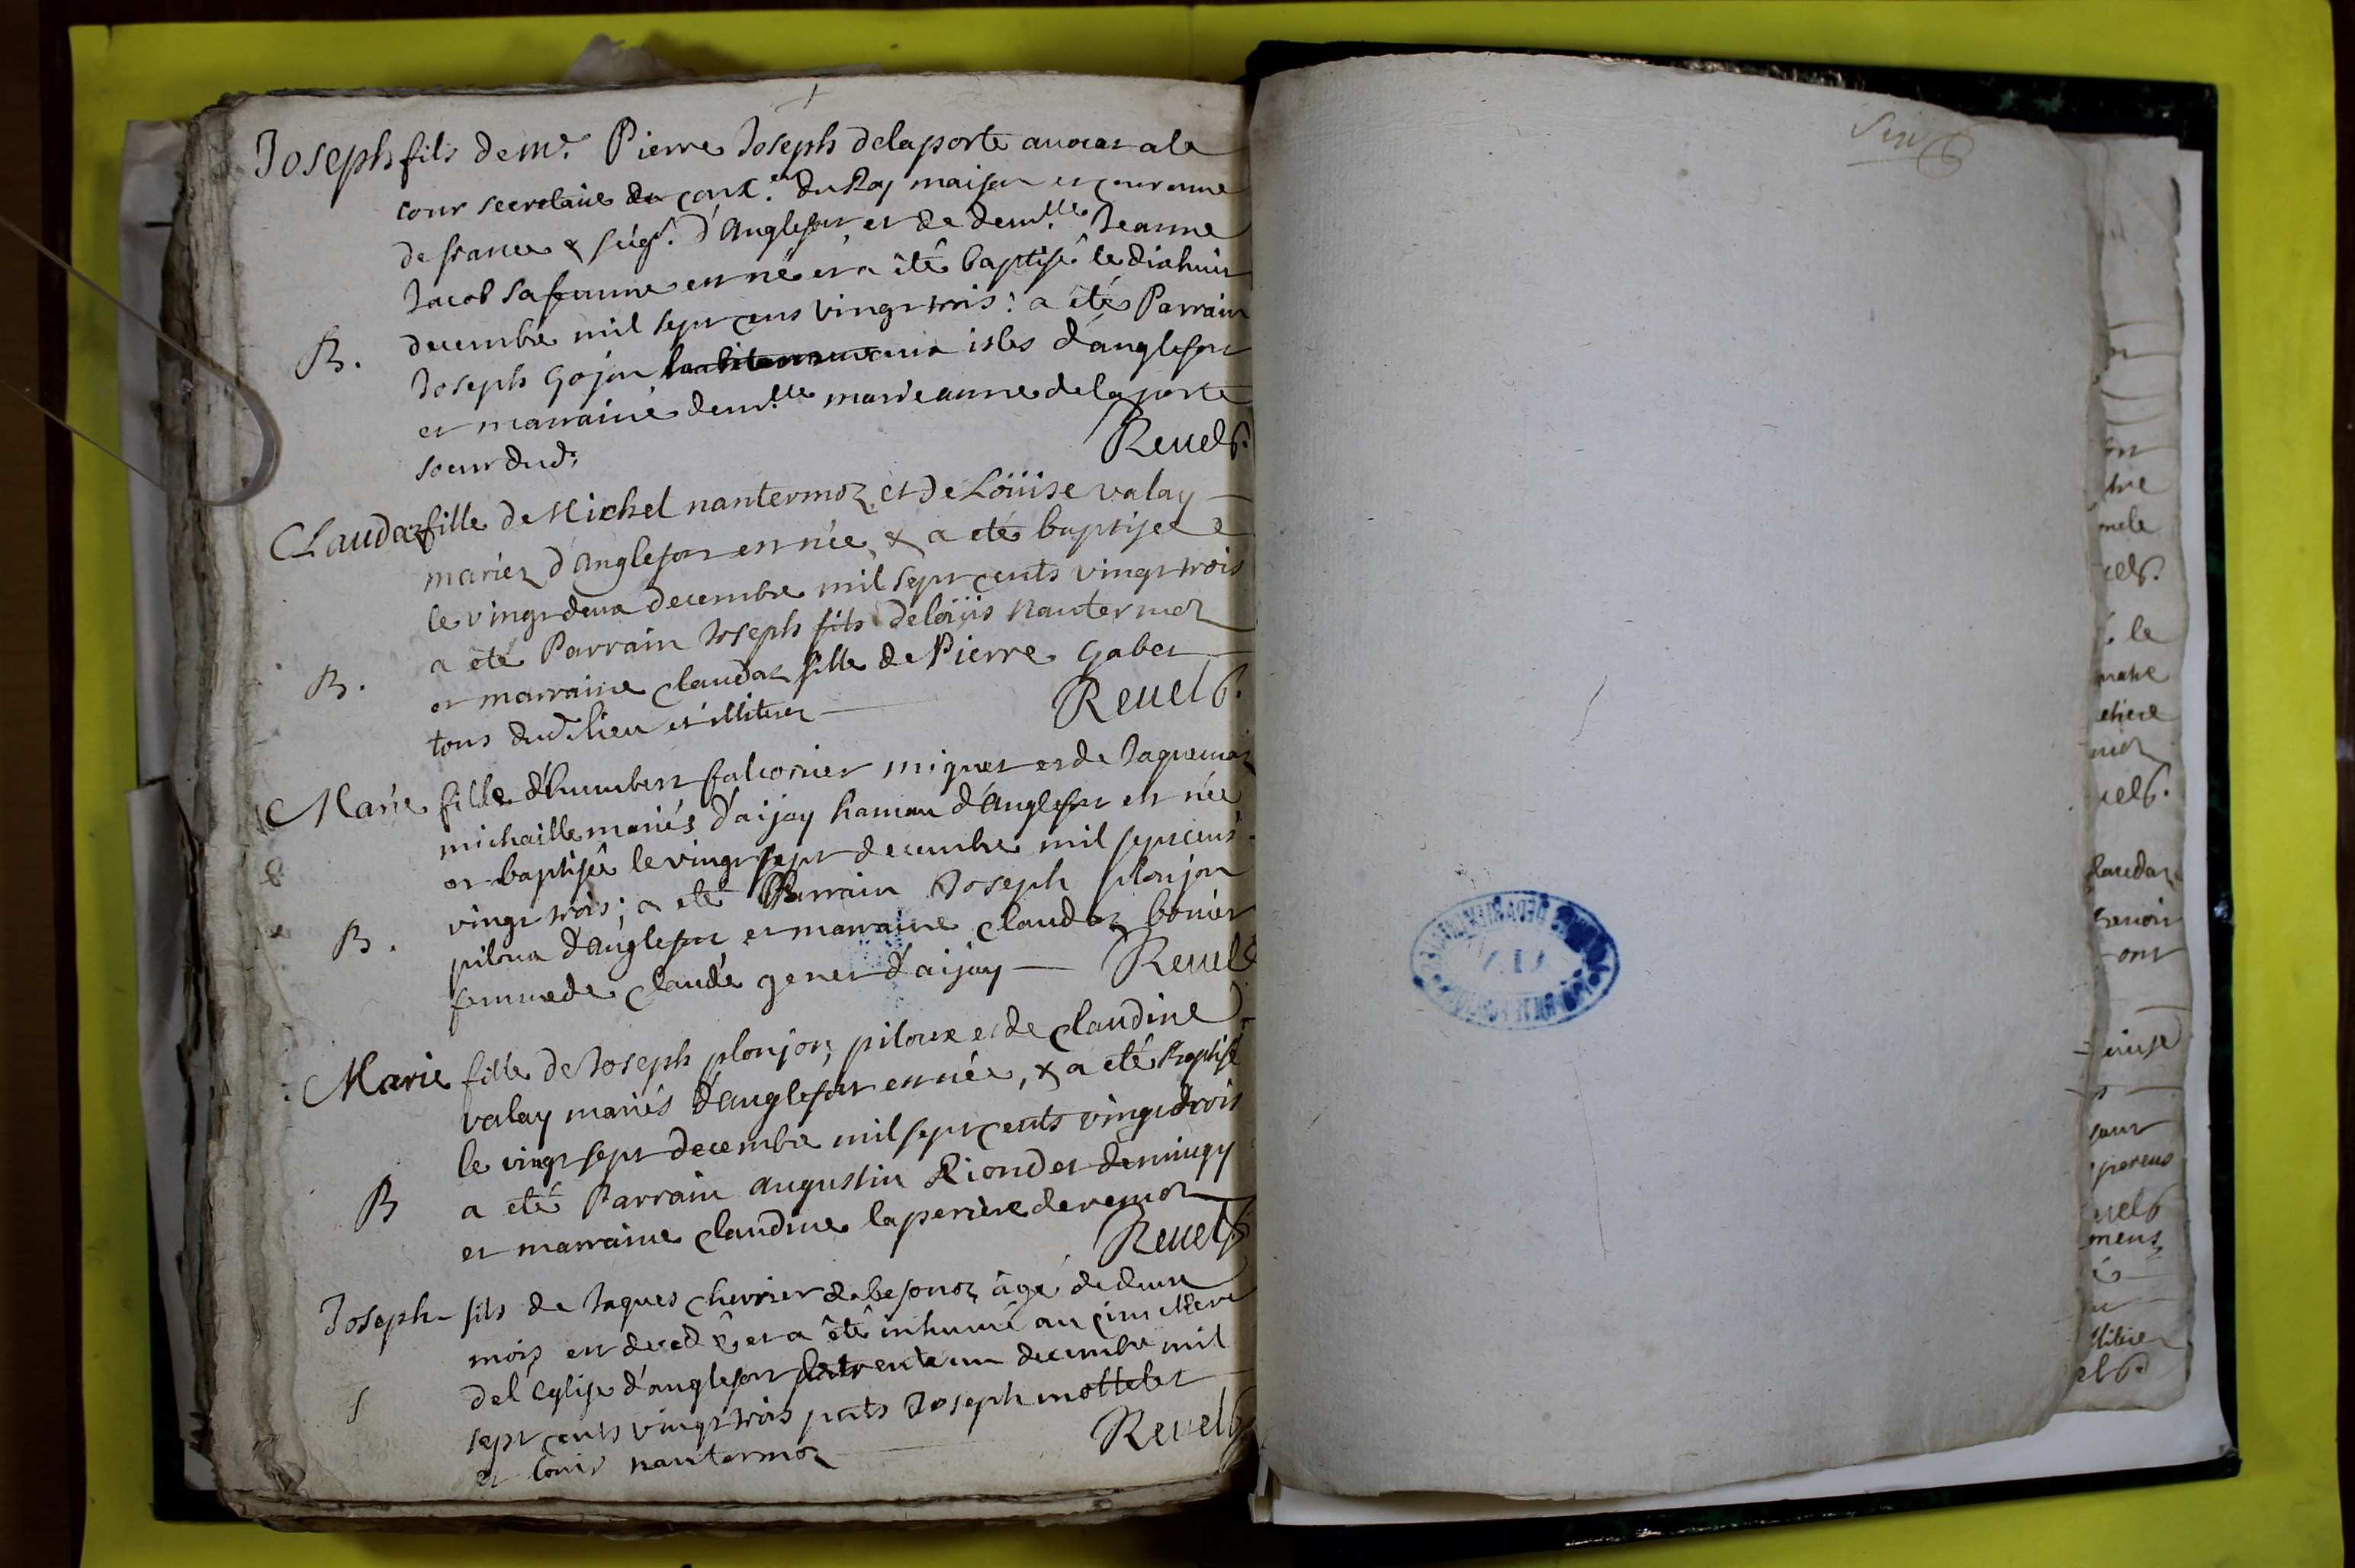 Joseph fils de mr. Pierre Joseph delaporte auocat a la
cour secretaire du Roy maison et couronne
de france & seigr. d'Anglefort et de demlle. Jeanne
Jacob sa femme est né et a êté baptisé le dixhuit
decembre mil sept cens vingt trois: a êté Parrain
B.
Joseph Gojon aux isles d'anglefort
et marraine demlle marie anne delaporte
soeur dud:
Reuel p.
Claudaz fille de Michel nantermoz et de Loüise valay
mariez d'Anglefort est née & a eté baptisée
le vingt deux decembre mil sept cents vingt trois
a eté Parrain Joseph fils de loüis Nantermoz
B.
et marraine claudaz fille de Pierre Gabet
tous dud. lieu et illiterez
Reuel p.
Marie fille d'humbert falconier mignet et de Jaquemaz
michaille mariés d'aijay hamau d'Anglefort est née
et baptisée le vingt sept decembre mil sept cens
vingt trois; a eté Parrain Joseph plonjon
B.
piloux d'anglefort et marraine claudaz bonier
femme de claude genet d'aijay
Reuel
Marie fille de Joseph plonjon piloux et de claudine
valay mariés d'anglefort est née, & a eté baptisé
le vingt sept decembre mil sept cents vingt trois
B
a eté Parrain augustin Riondet
et marraine claudine laperiere de remoz
Reuel p.
Joseph fils de Jaques chevrier de besonoz âgé de deux
mois est decedé et a êté inhumé au cimetiere
del Eglise d'anglefort le trente un decembre mil
S
sept cents vingt trois pnts Joseph mottelet
et loüis nantermoz
Reuel p.